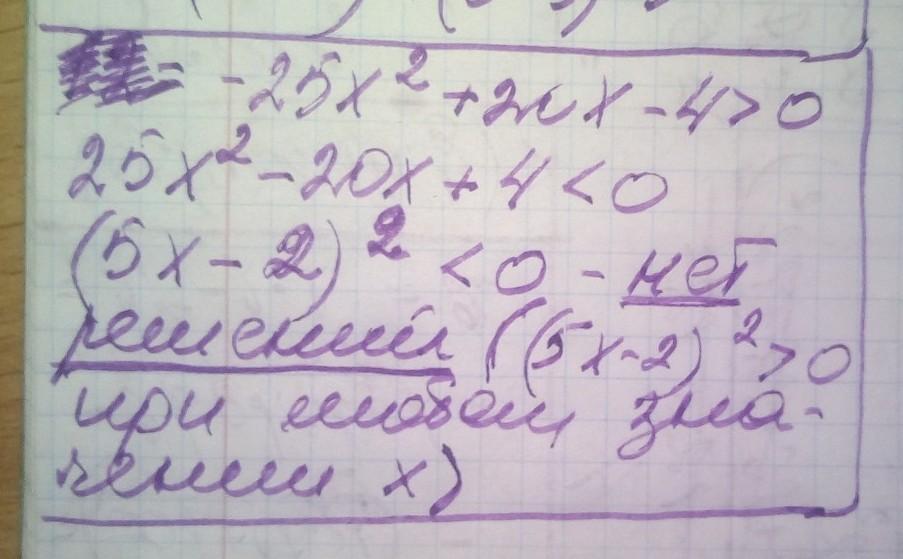 - -25x² + 20x - 4 > 0
25x² - 20x + 4 < 0
(5x - 2)² < 0 - нет
решений ((5x - 2)² > 0
при любом зна-
чении x)